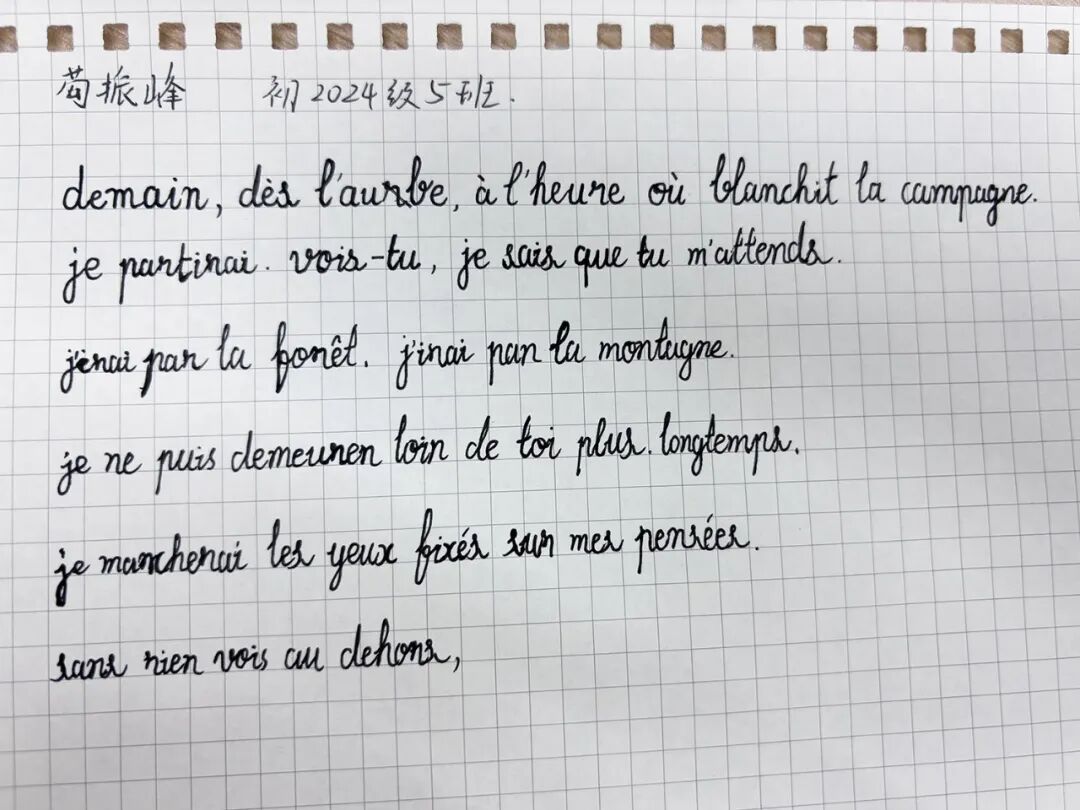 苟振峰 初2024级5班.
demain, dès l'aurbe, à l'heure où blanchit la campagne.
je partirai. vois-tu, je sais que tu m'attends.
j'érai par la forêt. j'irai par la montagne.
je ne puis demeurer loin de toi plus. longtemps.
je marcherai les yeux fixés sur mes pensées.
sans rien vois au dehors,